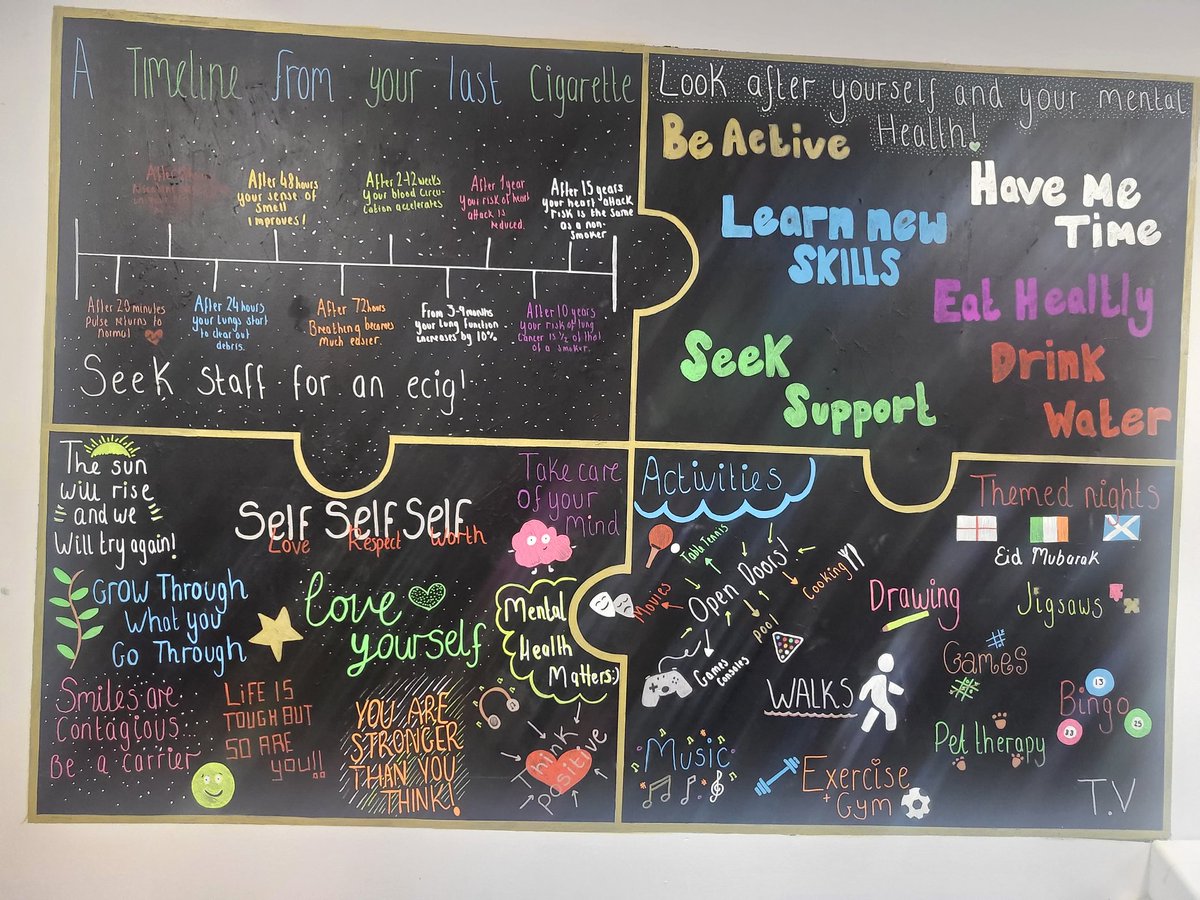 A Timeline from your last Cigarette
After 20 minutes
Pulse returns to
normal
After 24 hours
your lungs start
to clear out
debris.
After 48 hours
your sense of
smell
improves!
After 72 hours
Breathing becomes
much easier.
After 2-12 weeks
your blood circu-
lation accelerates
From 3-9 months
your lung function
increases by 10%
After 1 year
your risk of heart
attack is
reduced.
After 10 years
your risk of lung
cancer is 1/2 of that
of a smoker.
After 15 years
your heart attack
risk is the same
as a non-
smoker
Seek staff for an ecig!
Look after yourself and your mental
Health!
Be Active
Have Me
Time
Learn new
SKILLS
Eat Healtly
Seek
Support
Drink
Water
The sun
will rise
and we
Will try again!
Self Self Self
Love Respect Worth
Take care
of your
mind
Grow Through
What you
Go Through
love
yourself
Mental
Health
Matters:)
Smiles are
Contagious
Be a carrier
LiFE IS
TOUGH BUT
SO ARE
you!!
YOU ARE
STRONGER
THAN YOU
THINK!
Think
positive
Activities
Table Tennis
Movies
Open Doors!
Cooking
Pool
Games
Consoles
Themed nights
Eid Mubarak
Drawing
Jigsaws
Games
WALKS
Bingo
13
33
25
Music
Pet therapy
Exercise
+ Gym
T.V